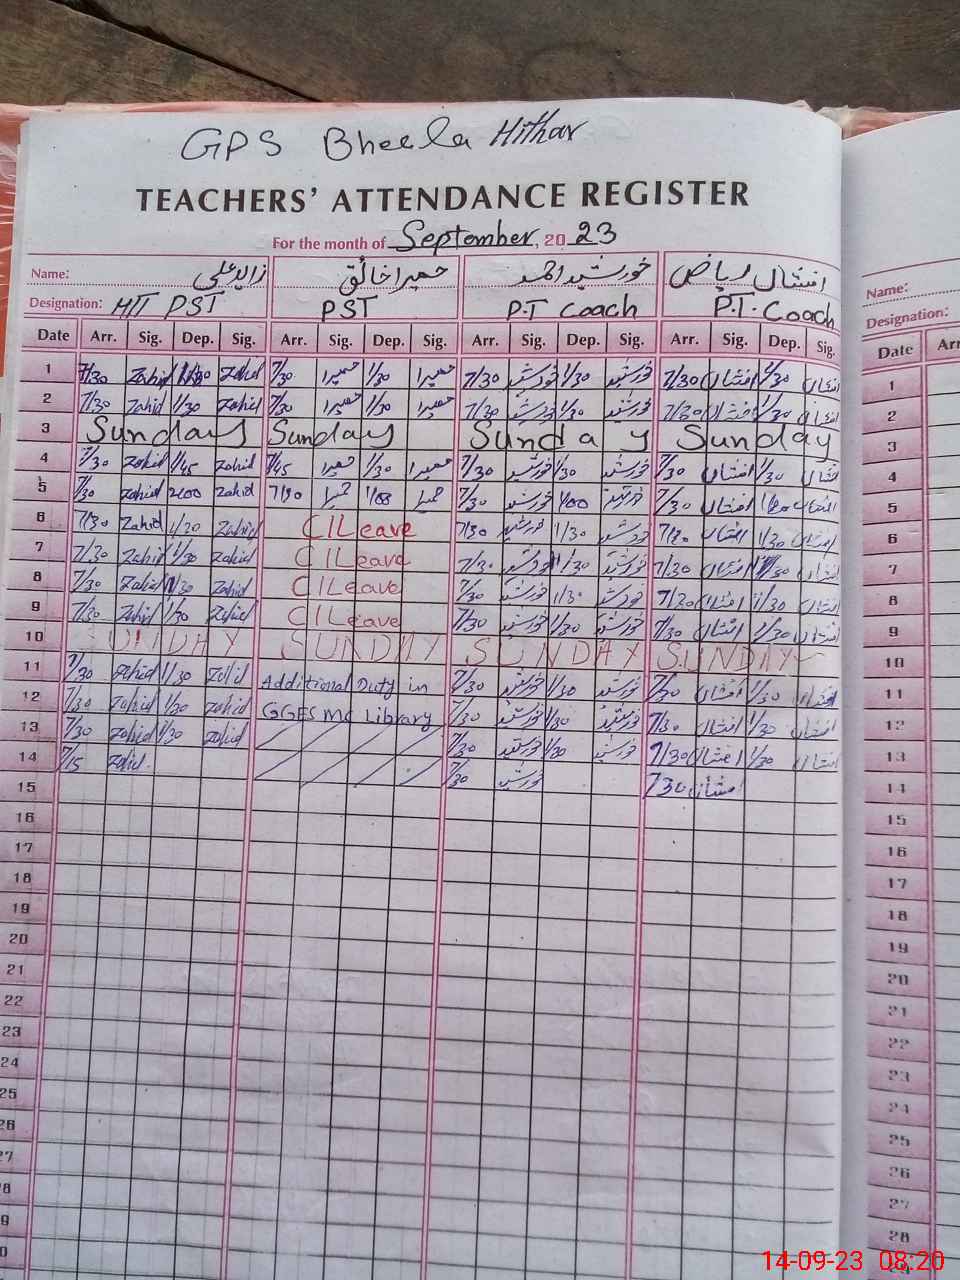 GPS Bheela Hithar
TEACHERS' ATTENDANCE REGISTER
For the month of September, 20 23
Name: زاہد علی حمیرا خالق خورشید احمد افشال ریاض
Designation: HIT PST PST P.T Coach P.T. Coach
Date Arr. Sig. Dep. Sig. Arr. Sig. Dep. Sig. Arr. Sig. Dep. Sig. Arr. Sig. Dep. Sig.
1 7/30 Zahid 1/30 Zahid 7/30 حمیرا 1/30 حمیرا 7/30 خورشید 1/30 خورشید 7/30 افشال 1/30 افشال
2 7/30 Zahid 1/30 Zahid 7/30 حمیرا 1/30 حمیرا 7/30 خورشید 1/30 خورشید 7/30 افشال 1/30 افشال
3 Sunday Sunday Sunday Sunday
4 7/30 Zahid 1/45 Zahid 7/45 حمیرا 1/30 حمیرا 7/30 خورشید 1/30 خورشید 7/30 افشال 1/30 افشال
5 7/30 Zahid 2/00 Zahid 7/30 حمیرا حمیرا 7/30 خورشید 1/00 خورشید 7/30 افشال افشال
6 7/30 Zahid 1/30 Zahid C/Leave 7/30 خورشید 1/30 خورشید 7/30 افشال 1/30 افشال
7 7/30 Zahid 1/30 Zahid C/Leave 7/30 خورشید 1/30 خورشید 7/30 افشال 1/30 افشال
8 7/30 Zahid 1/30 Zahid C/Leave 7/30 خورشید 1/30 خورشید 7/30 افشال 1/30 افشال
9 7/30 Zahid 1/30 Zahid C/Leave 7/30 خورشید 1/30 خورشید 7/30 افشال 1/30 افشال
10 SUNDAY SUNDAY SUNDAY SUNDAY
11 7/30 Zahid 1/30 Zahid Additional Duty in 7/30 خورشید 1/30 خورشید 7/30 افشال 1/30 افشال
12 7/30 Zahid 1/30 Zahid GGES MC Library 7/30 خورشید 1/30 خورشید 7/30 افشال 1/30 افشال
13 7/30 Zahid 1/30 Zahid 7/30 خورشید 1/30 خورشید 7/30 افشال 1/30 افشال
14 7/15 Zahid 7/30 خورشید 7/30 افشال
15
16
17
18
19
20
21
22
23
24
25
26
27
28
Name:
Designation:
Date Arr
1
2
3
4
5
6
7
8
9
10
11
12
13
14
15
16
17
18
19
20
21
22
23
24
25
26
27
28
14-09-23 08:20